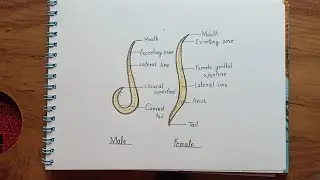 Mouth
Excreting pore
Lateral line
Cloacal aperture
Curved
tail
Male
Mouth
Excreting pore
Female genital
aperture
Lateral line
Anus
Tail
Female